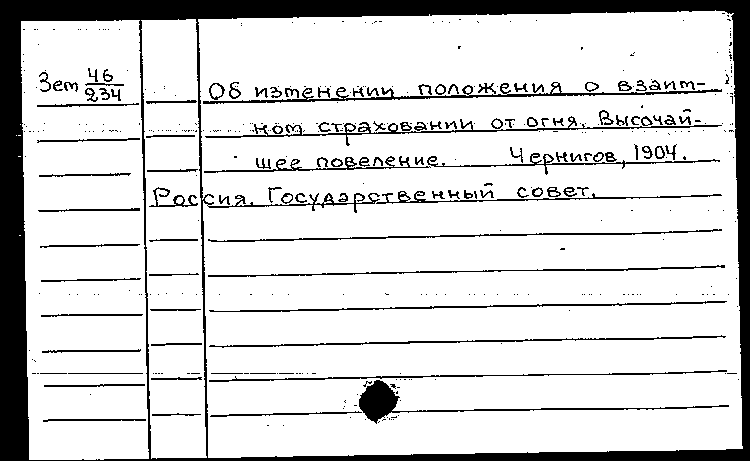 Зет 46/234
Об изменении положения о взаим-
ном страховании от огня. Высочай-
шее повеление. Чернигов, 1904.
Россия. Государственный совет.